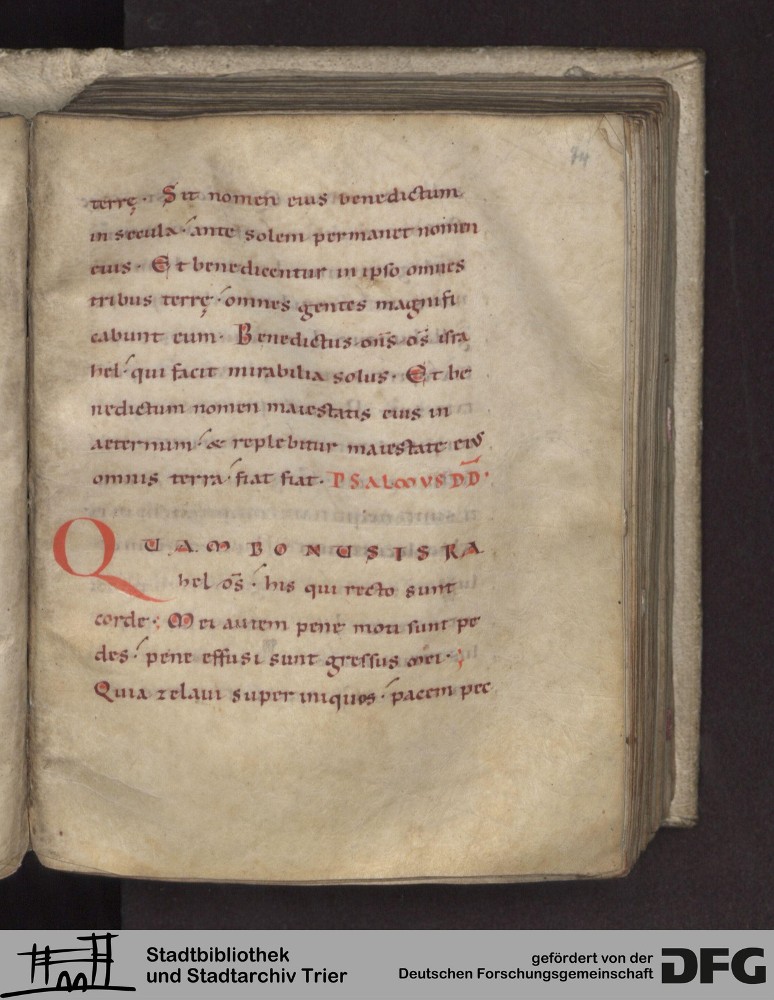 74
terrę· Sit nomen eius benedictum
in secula·́ ante solem permanet nomen
eius· Et benedicentur in ipso omnes
tribus terrę·́ omnes gentes magnifi
cabunt eum· Benedictus dn̄s ds̄ isra
hel·́ qui facit mirabilia solus· Et be
nedictum nomen maiestatis eius in
aeternum·́ & replebitur maiestate eius
omnis terra·́ fiat fiat· PSALMUS DD̄·
QUAM BONUS ISRA
hel ds̄·́ his qui recto sunt
corde; Mei autem pene moti sunt pe
des·́ pene effusi sunt gressus mei·;
Quia zelaui super iniquos·́ pacem pec
Stadtbibliothek
und Stadtarchiv Trier
gefördert von der
Deutschen Forschungsgemeinschaft
DFG